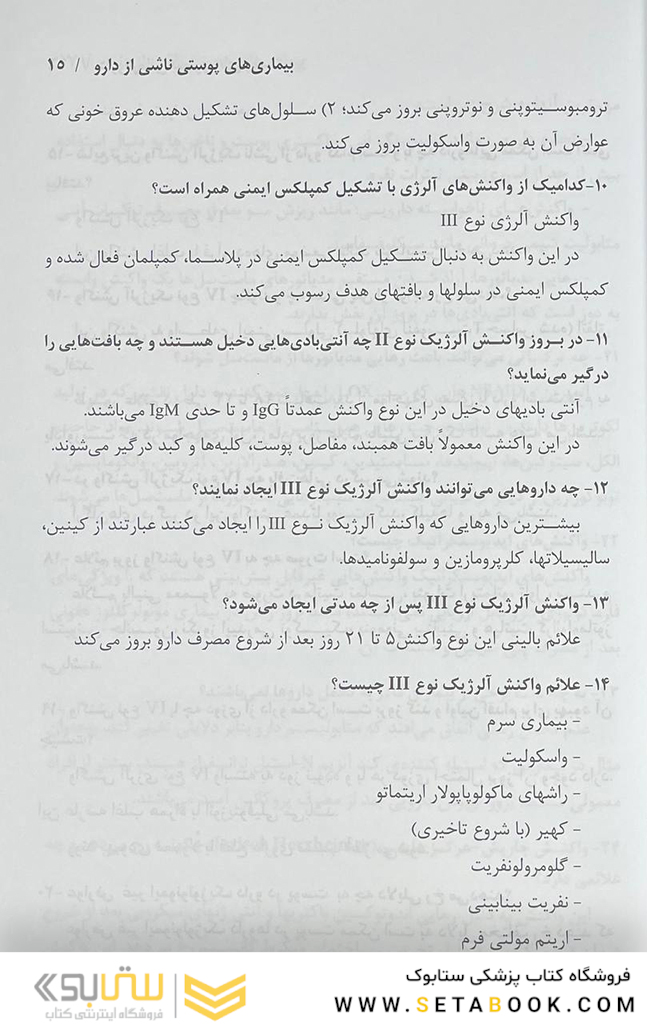 بیماری‌های پوستی ناشی از دارو / ۱۵
ترومبوسیتوپنی و نوتروپنی بروز می‌کند؛ ۲) سلول‌های تشکیل دهنده عروق خونی که
عوارض آن به صورت واسکولیت بروز می‌کند.
۱۰-کدامیک از واکنش‌های آلرژی با تشکیل کمپلکس ایمنی همراه است؟
واکنش آلرژی نوع III
در این واکنش به دنبال تشکیل کمپلکس ایمنی در پلاسما، کمپلمان فعال شده و
کمپلکس ایمنی در سلولها و بافتهای هدف رسوب می‌کند.
۱۱- در بروز واکنش آلرژیک نوع II چه آنتی‌بادی‌هایی دخیل هستند و چه بافت‌هایی را
درگیر می‌نماید؟
آنتی بادیهای دخیل در این نوع واکنش عمدتاً IgG و تا حدی IgM می‌باشند.
در این واکنش معمولاً بافت همبند، مفاصل، پوست، کلیه‌ها و کبد درگیر می‌شوند.
۱۲- چه داروهایی می‌توانند واکنش آلرژیک نوع III ایجاد نمایند؟
بیشترین داروهایی که واکنش آلرژیک نوع III را ایجاد می‌کنند عبارتند از کینین،
سالیسیلاتها، کلرپرومازین و سولفونامیدها.
۱۳- واکنش آلرژیک نوع III پس از چه مدتی ایجاد می‌شود؟
علائم بالینی این نوع واکنش۵ تا ۲۱ روز بعد از شروع مصرف دارو بروز می‌کند
۱۴- علائم واکنش آلرژیک نوع III چیست؟
- بیماری سرم
- واسکولیت
- راشهای ماکولوپاپولار اریتماتو
- کهیر (با شروع تاخیری)
- گلومرولونفریت
- نفریت بینابینی
- اریتم مولتی فرم
فروشگاه کتاب پزشکی ستابوک
WWW.SETABOOK.COM
ستابوک
فروشگاه اینترنتی کتاب